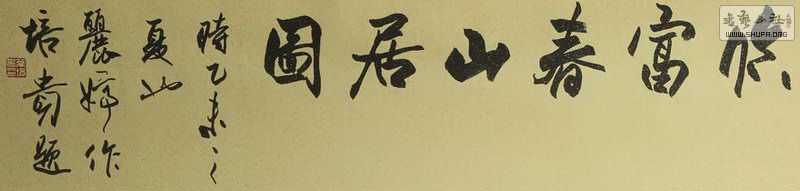 富春山居圖
時乙未之
夏
麗婷作
培貴題
书艺公社
WWW.SHUFA.ORG